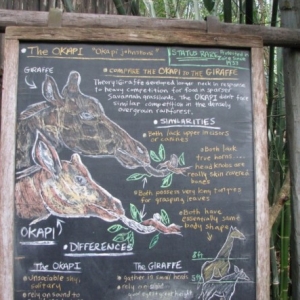 • The OKAPI "Okapi johnstoni"
STATUS: RARE
• COMPARE THE OKAPI to the GIRAFFE
GIRAFFE
The Giraffe evolved longer neck in response
to heavy competition for food in sparser
Savannah grasslands. The OKAPI don't face
similar competition in the densely
overgrown rainforest.
• SIMILARITIES
• Both lack upper incisors
or canines
• Both lack
true horns...
head knobs are
really skin covered
bones
• Both possess very long tongues
for grasping leaves
• Both have
essentially same
body shape
OKAPI
• DIFFERENCES
The OKAPI
• Unsociable shy,
solitary
• rely on sound to
The GIRAFFE
• gather in small herds
• rely on good
eyesight & height